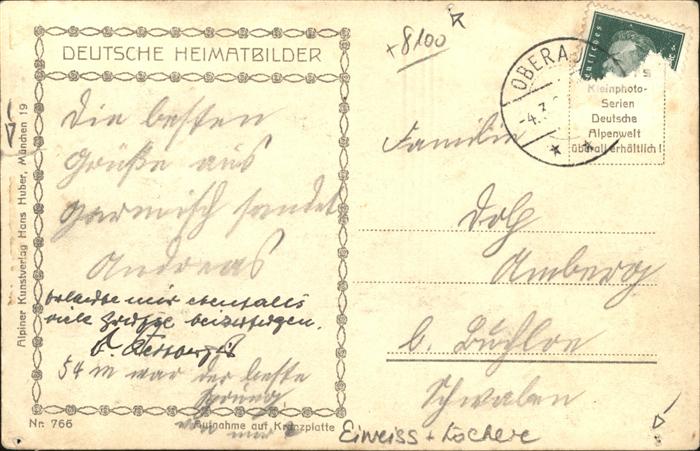 DEUTSCHE HEIMATBILDER
Die besten
Grüße aus
Garmisch sendet
Andreas
erlaube mir ebenfalls
viele Grüsse beizufügen.
54 m war der beste
Sprung
von mir
Nr. 766
Aufnahme auf Kranzplatte
Alpiner Kunstverlag Hans Huber, München 19
+8100
OBERA
4.3.
Kleinphoto-
Serien
Deutsche
Alpenwelt
überall erhältlich!
Familie
Dolp
Amberg
b. Buchloe
Schwaben
Eiweiss + Lochere